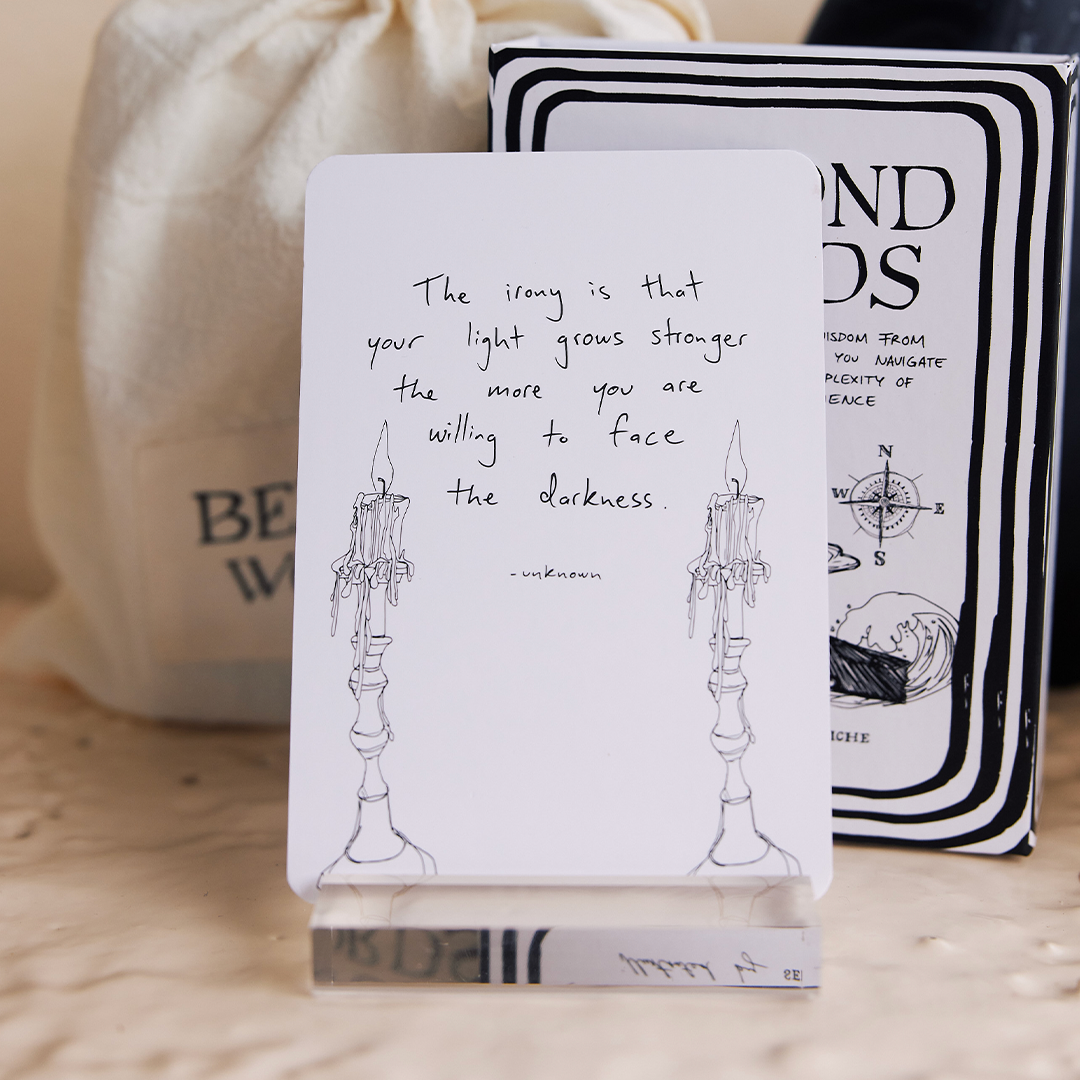 The irony is that
your light grows stronger
the more you are
willing to face
the darkness.
-unknown
OND
DS
ISDOM FROM
YOU NAVIGATE
PLEXITY OF
IENCE
N
W E
S
ICHE
BE
W
illustrated by
SE